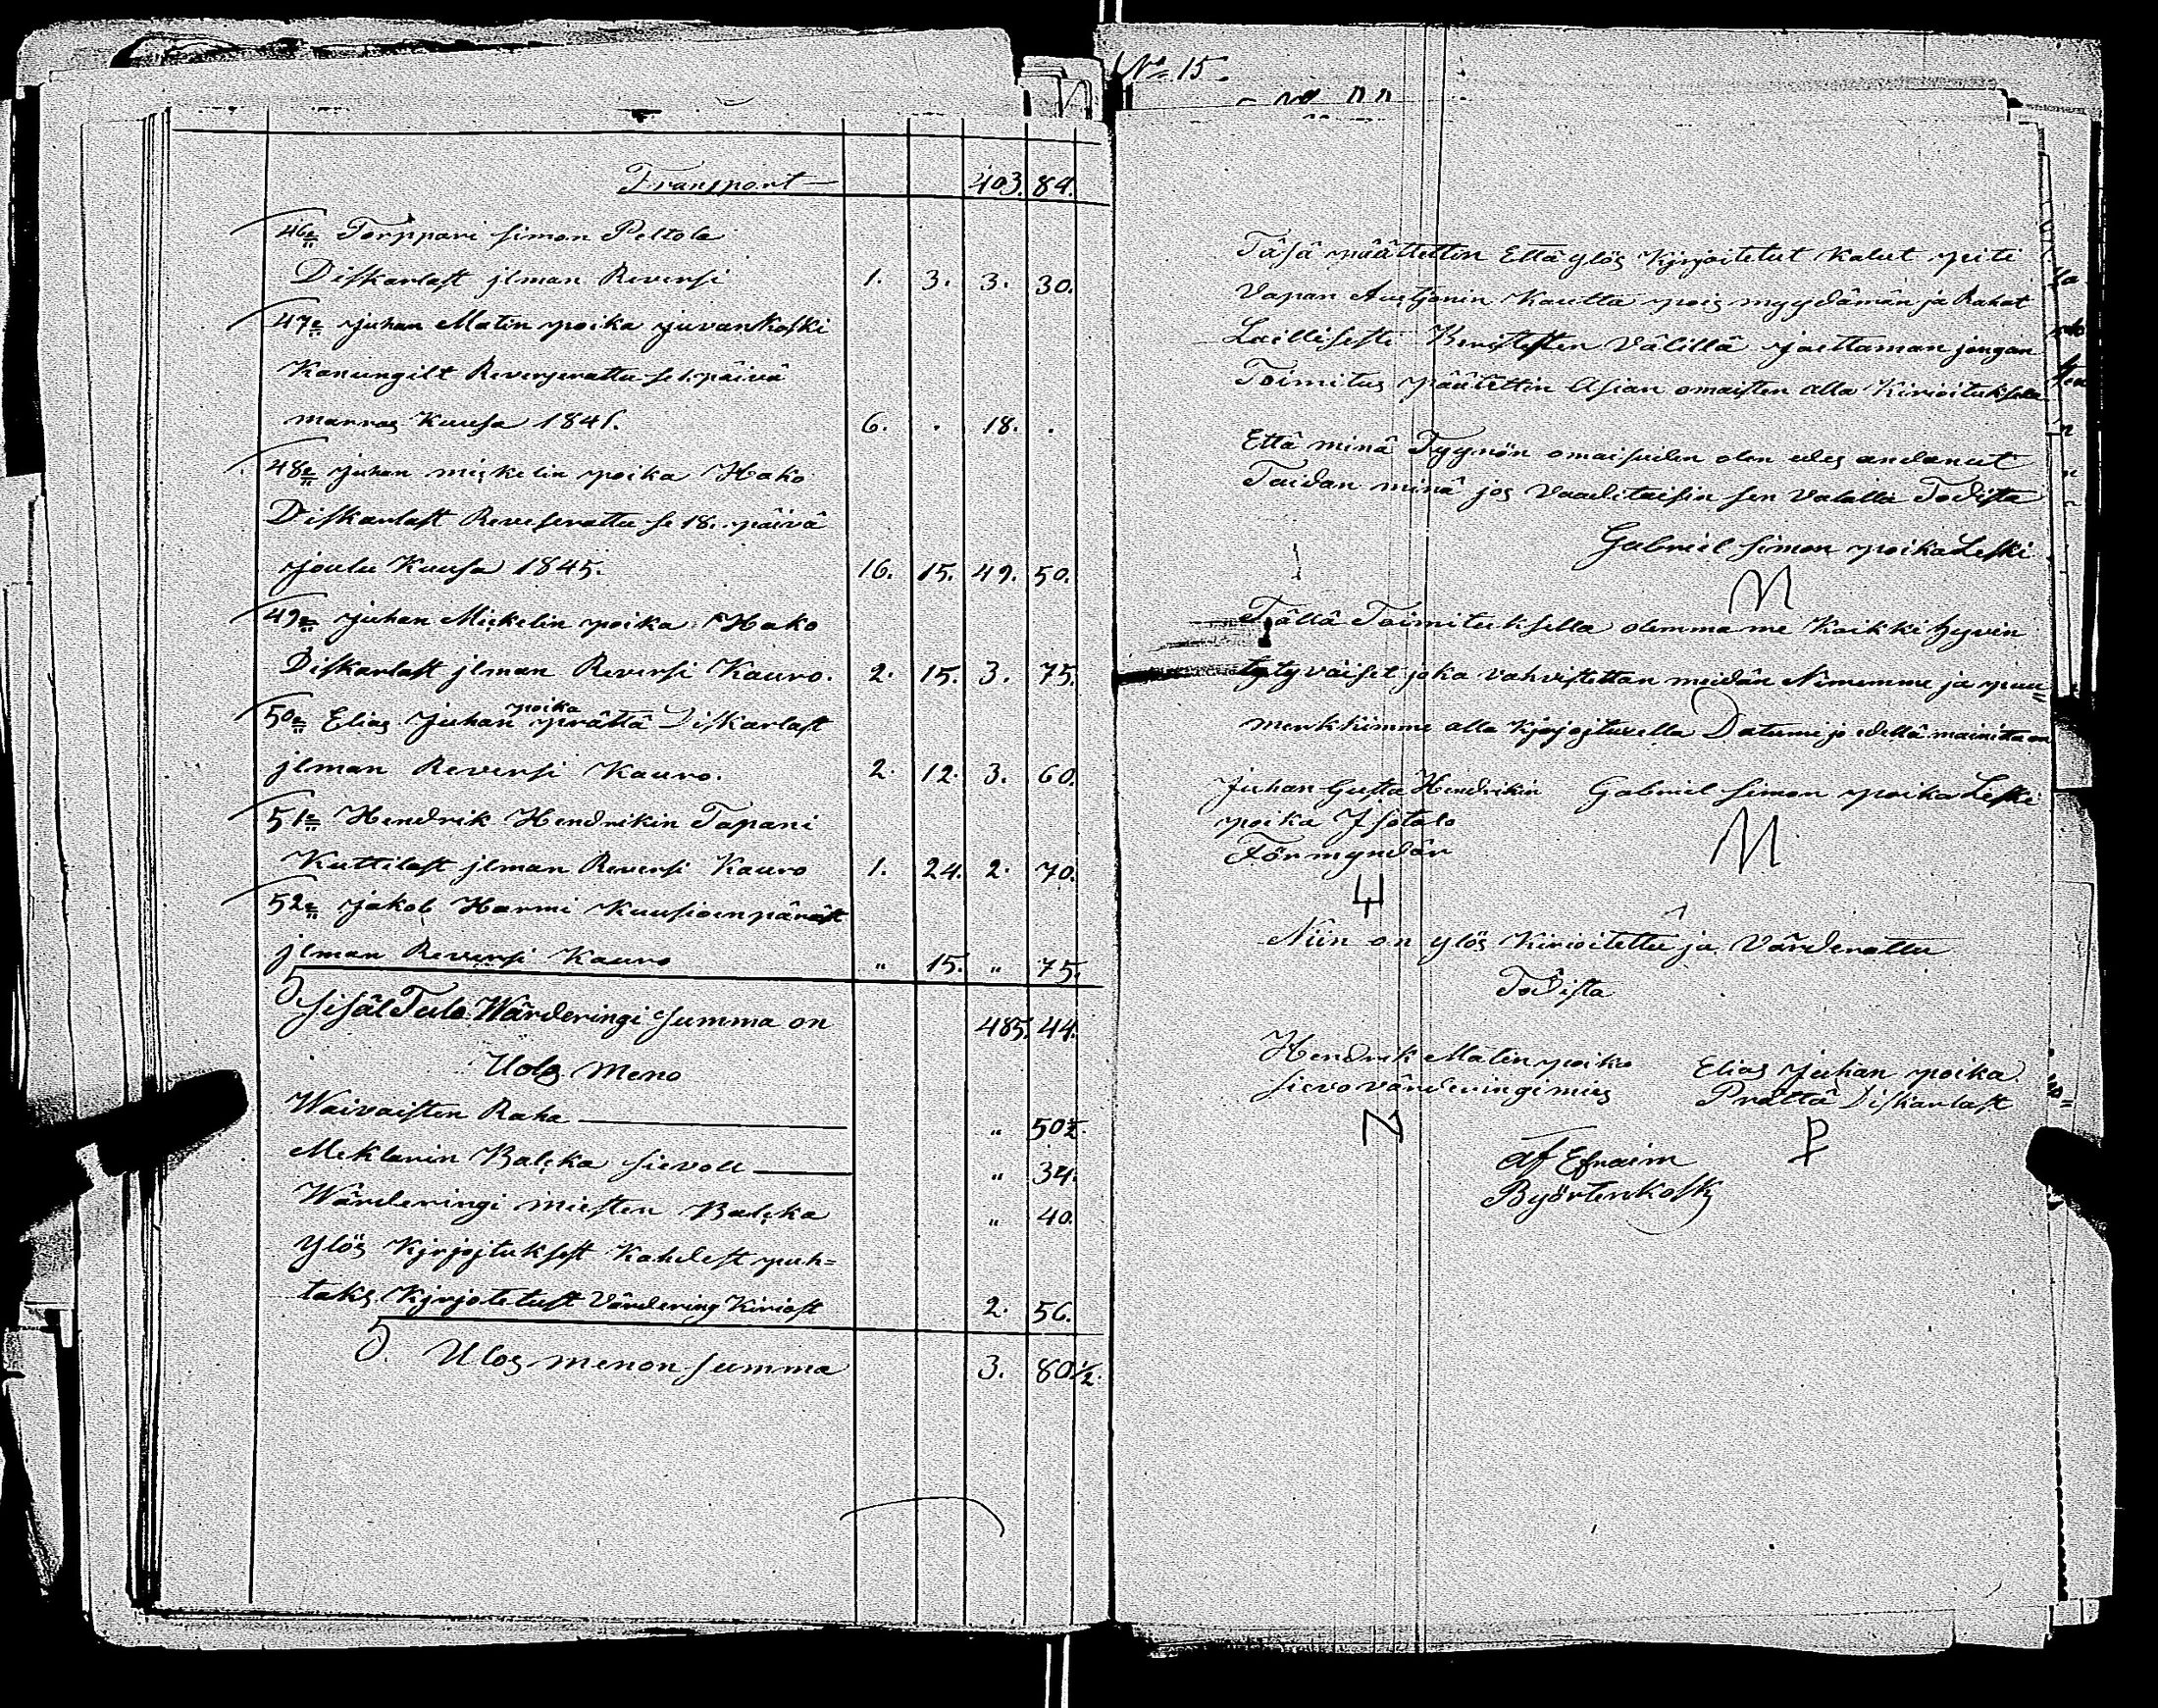 Transport — 403. 84.
46: Torppari Simon Peltola
Diskarlast jlman Reversi 1. 3. 3. 30.
47: Juhan Matin poika juvankoski
Kanungilt Reverserattu se 1. päivä
marras Kuusa 1841. 6. . 18. .
48: Juhan Miskelin poika Hako
Diskarlast Reveserattu se 18. päivä
Joulu Kuusa 1845. 16. 15. 49. 50.
49: Juhan Mickelin poika Hako
Diskarlast jlman Reversi Kauro. 2. 15. 3. 75.
50: Elias Juhan poika prättä Diskarlast
jlman Reversi Kauro. 2. 12. 3. 60.
51: Hendrik Hendrikin Tapani
Kuttilast jlman Reversi Kauro 1. 24. 2. 70.
52: Jakob Harmi Kuusioenpäräst
jlman Reversi Kauro " 15. " 75.
Sisäl Tulo Wärderingi Summa on 485. 44.
Uolg Meno
Waivaisten Raha — " 50½.
Meklarin Balcka Sievoll — " 34.
Wärderingi miesten Balcka " 40.
Ylös Kjrjojtuksest Kahdest puh=
taks Kjrjotetust Värdering Kiriost 2. 56.
Ulos menon Summa 3. 80½.
No 15.
Täsä päättettin Että ylös Kjrjoitetut Kalut piti
Vapan Auctjonin Kautta pois myydämän ja Rahat
Laillisesti Perillisten Välillä jaettaman jongan
Toimitus päätettin Asian omaisten alla Kirioituksela
Että minä Tyynön omaisuden olen edes andanut
Taidan minä jos Vaaditaisin sen Valalla Todista
Gabriel Simon poika Leski
M
Tällä Toimituksella olemma me Kaikki hyvin
tytyväiset joka vahvistettan meidän Nimemme ja puu=
merkkimme alla Kjrjojtuxella Datumi jo edellä mainittu on
Juhan Gusta Hendrikin Gabriel Simon poika Leski
poika Jsotalo
Förmyndär M
Niin on ylös Kirioitettu ja Värderattu
Todista
Hendrik Matin poika Elias Juhan poika
Sievo värderingimies Prättä Diskarlast
N P
af Efraim
Byörtenkosk